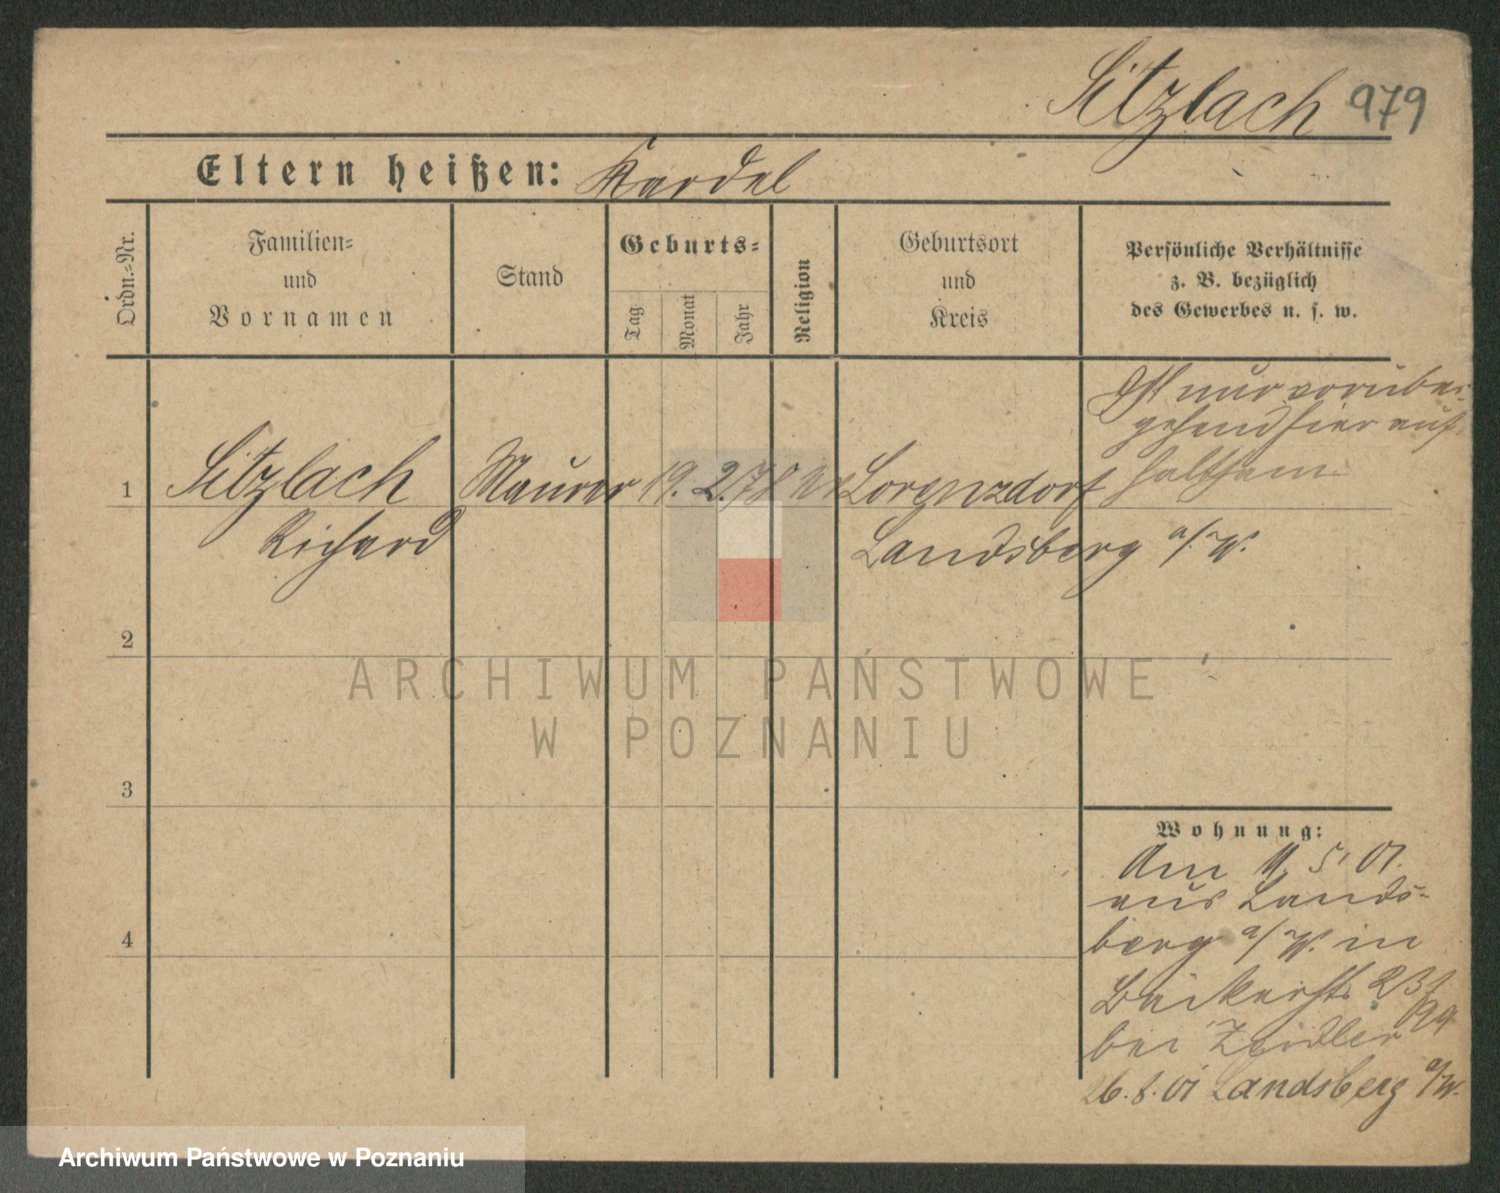 Sitzlach 979
Eltern heißen: Kardel
Ordn.=Nr.
Familien=
und
Vornamen
Stand
Geburts=
Tag
Monat
Jahr
Religion
Geburtsort
und
Kreis
Persönliche Verhältnisse
z. B. bezüglich
des Gewerbes u. s. w.
Ist nur vorüber-
gehend hier auf-
haltsam
1 Sitzlach Maurer 19. 2. 78 Lorenzdorf
Richard Landsberg a/W.
2
3
4
Wohnung:
Am 11. 5. 01.
aus Lands-
berg a/W. in
Bäckerstr. 23
bei Zeidler
26. 8. 01 Landsberg a/W.
ARCHIWUM PAŃSTWOWE
W POZNANIU
Archiwum Państwowe w Poznaniu